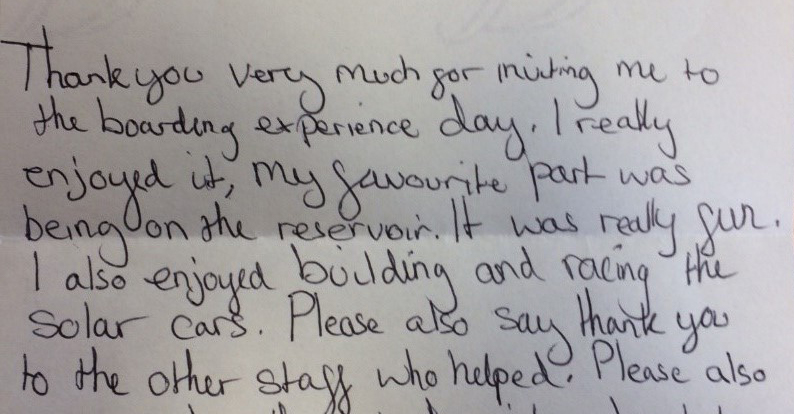 Thank you very much for inviting me to
the boarding experience day. I really
enjoyed it, my favourite part was
being on the reservoir. It was really fun.
I also enjoyed building and racing the
solar cars. Please also say thank you
to the other staff who helped. Please also